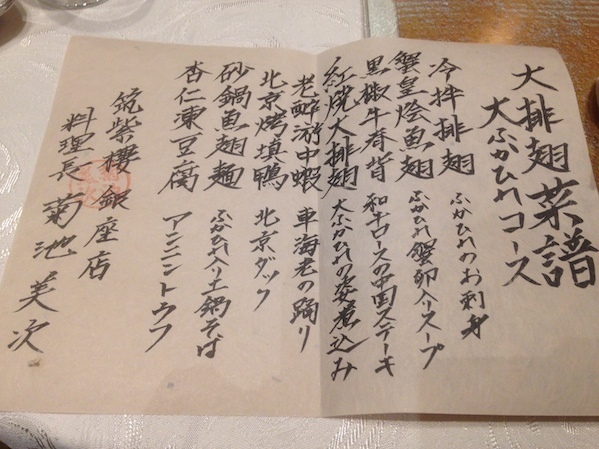 大排翅菜譜
大ふかひれコース
冷拌排翅 ふかひれのお刺身
蟹皇燴魚翅 ふかひれ蟹卵入りスープ
黒椒牛脊背 和牛ロースの中国ステーキ
紅焼大排翅 大ふかひれの姿煮込み
老酔游中蝦 車海老の踊り
北京烤填鴨 北京ダック
砂鍋魚翅麺 ふかひれ入り土鍋そば
杏仁凍豆腐 アンニントウフ
筑紫樓 銀座店
料理長 菊池美次